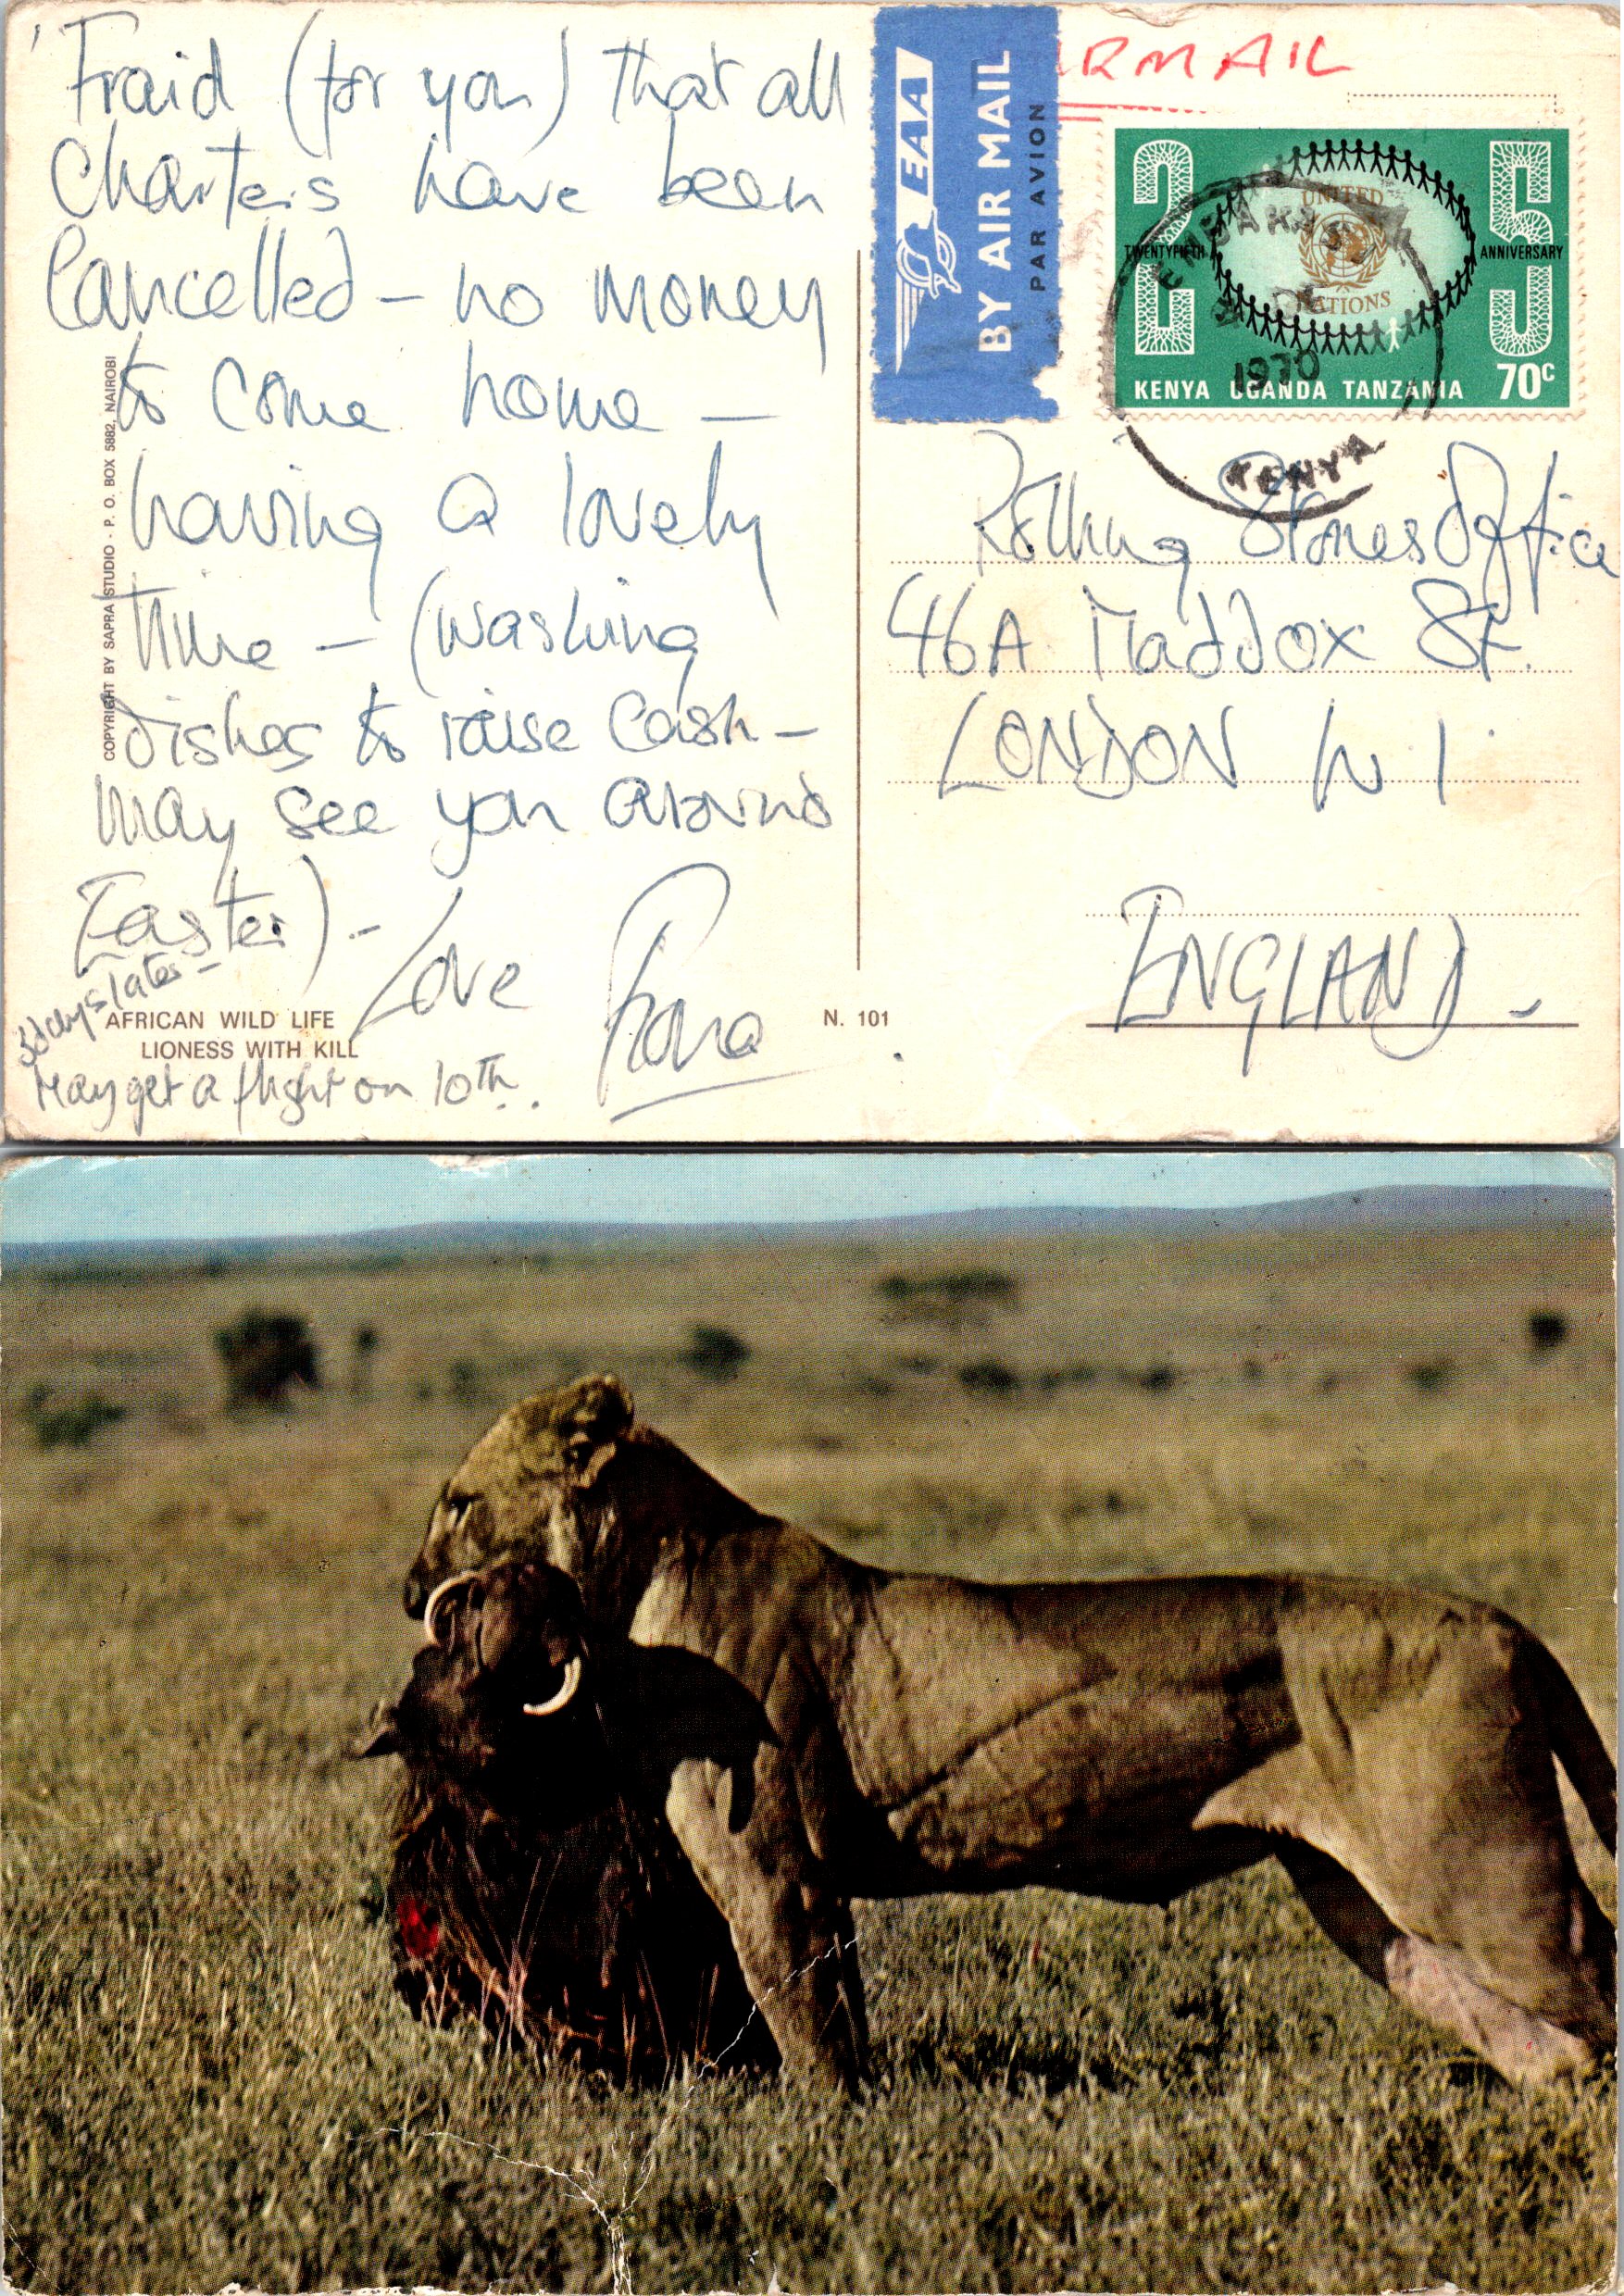 'Fraid (for you) that all
Charters have been
Cancelled – no money
to come home –
having a lovely
time – (washing
dishes to raise cash –
may see you around
Easter) –
Love Fiona
3 days later –
May get a flight on 10th.
AFRICAN WILD LIFE
LIONESS WITH KILL
N. 101
COPYRIGHT BY SAPRA STUDIO - P. O. BOX 5882, NAIROBI
EAA
BY AIR MAIL
PAR AVION
AIRMAIL
25
TWENTYFIFTH ANNIVERSARY
UNITED
NATIONS
KENYA UGANDA TANZANIA 70c
EMBAKASI
1970
KENYA
Rolling Stones Office
46A Maddox St.
LONDON W.1.
ENGLAND –